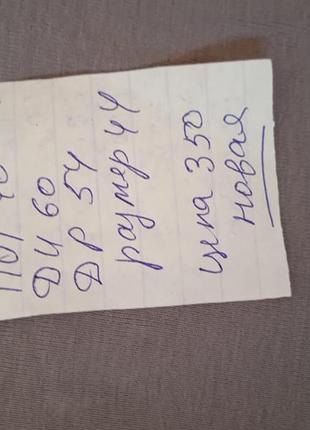 ДИ 60
ДР 54
размер 44
цена 350
новая